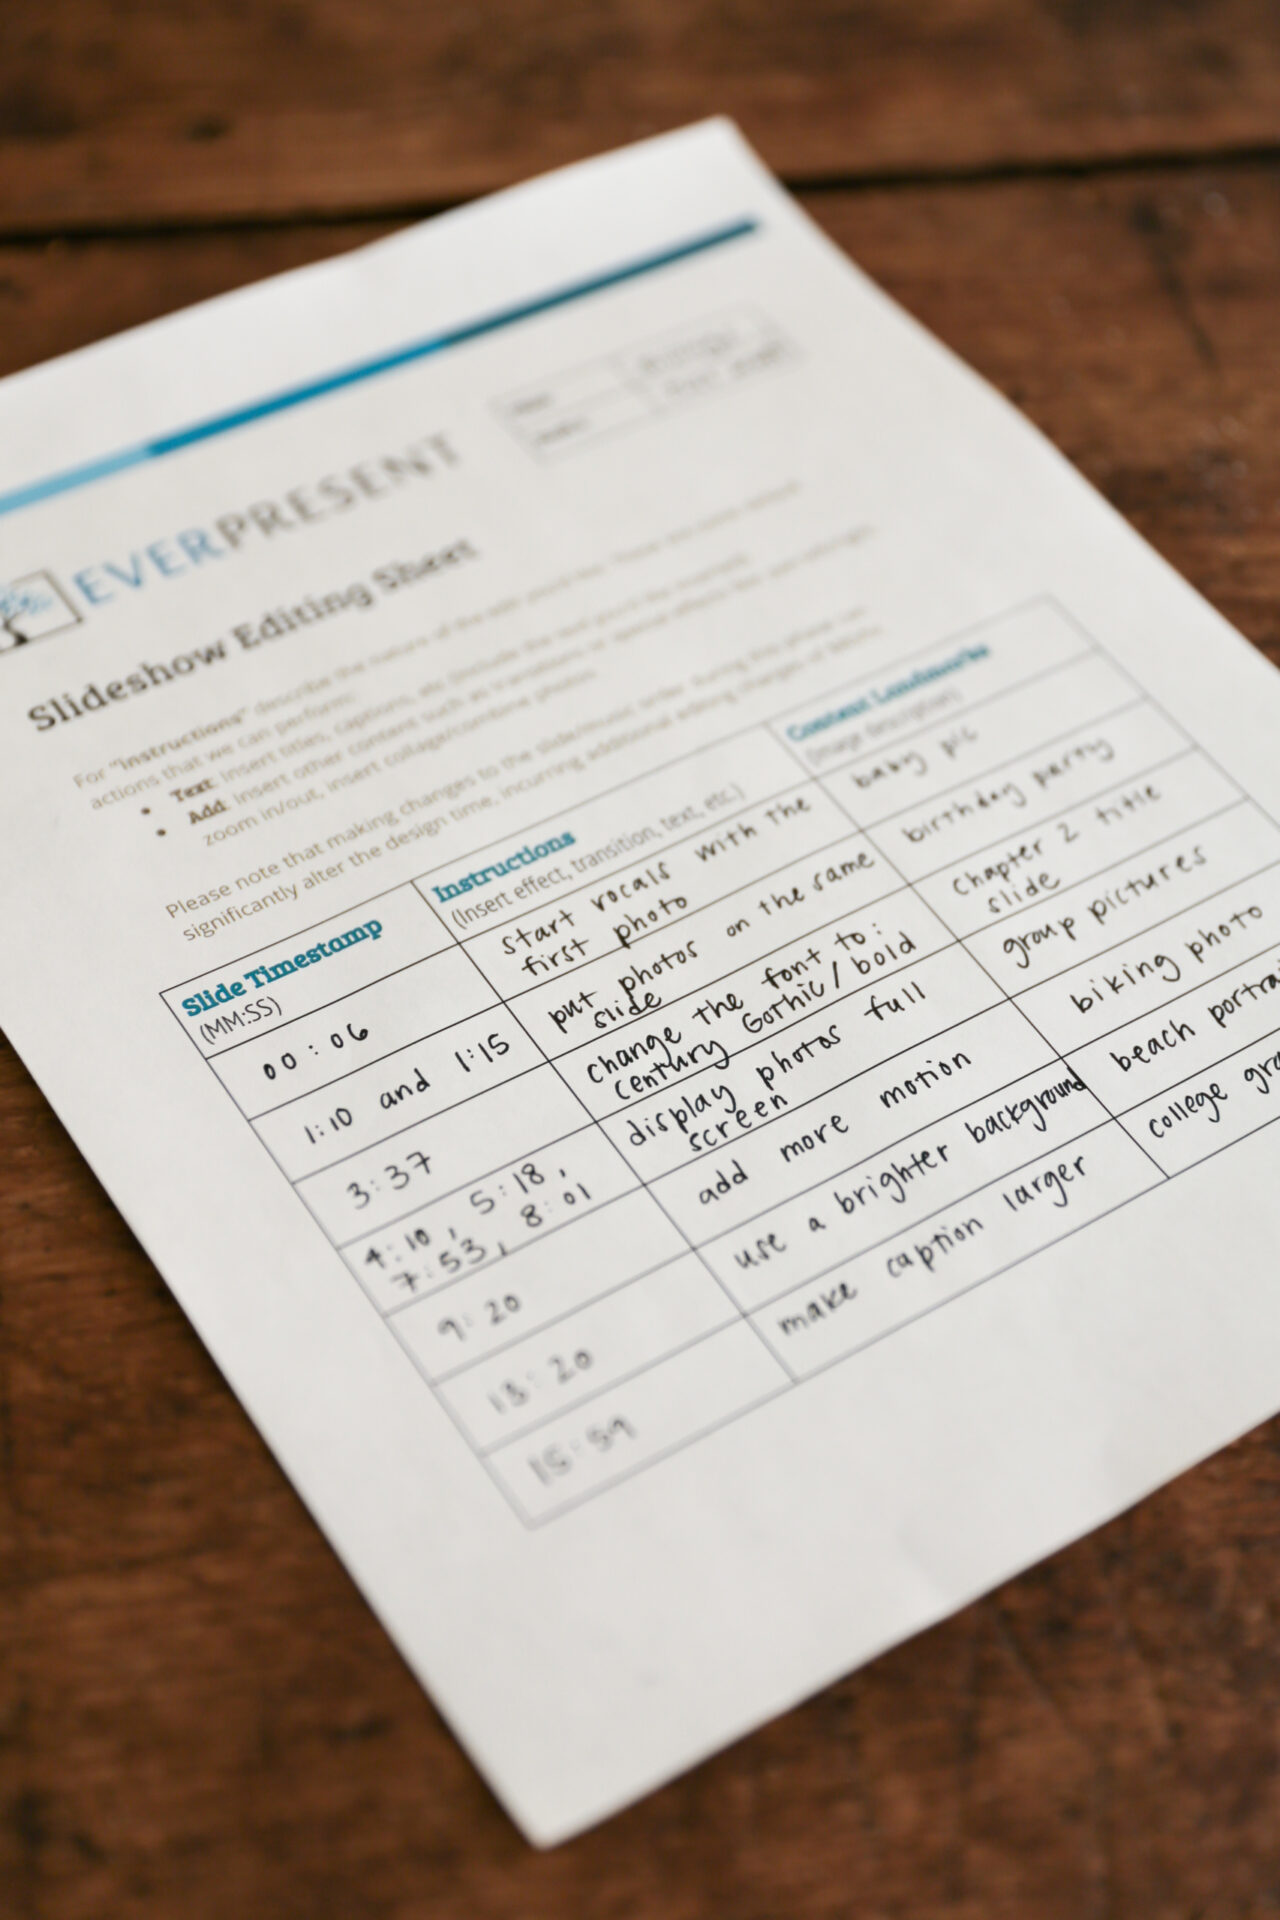 EVERPRESENT
Slideshow Editing Sheet
For "Instructions" describe the nature of the edit you'd like. These are some
actions that we can perform:
• Text: Insert titles, captions, etc (include the text you'd like inserted)
• Add: Insert other content such as transitions or special effects like
zoom in/out, insert collage/combine photos.
Please note that making changes to the slide/music order during this phase can
significantly alter the design time, incurring additional editing charges
Slide Timestamp
(MM:SS)
Instructions
(Insert effect, transition, text, etc.)
Content Landmarks
(Image description)
00:06
start vocals with the
first photo
baby pic
1:10 and 1:15
put photos on the same
slide
birthday party
3:37
change the font to:
Century Gothic/bold
Chapter 2 title
slide
4:10, 5:18,
7:53, 8:01
display photos full
screen
group pictures
9:20
add more motion
biking photo
13:20
use a brighter background
beach
15:59
make caption larger
college